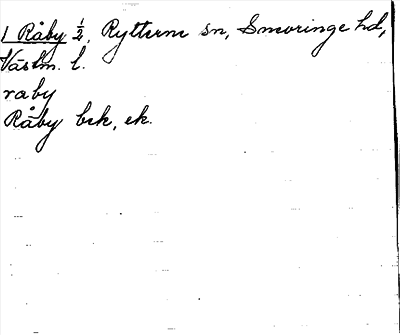 1 Råby ½, Rytterne sn, Snevringe hd,
Västm. l.
raby
Råby bek, ek.